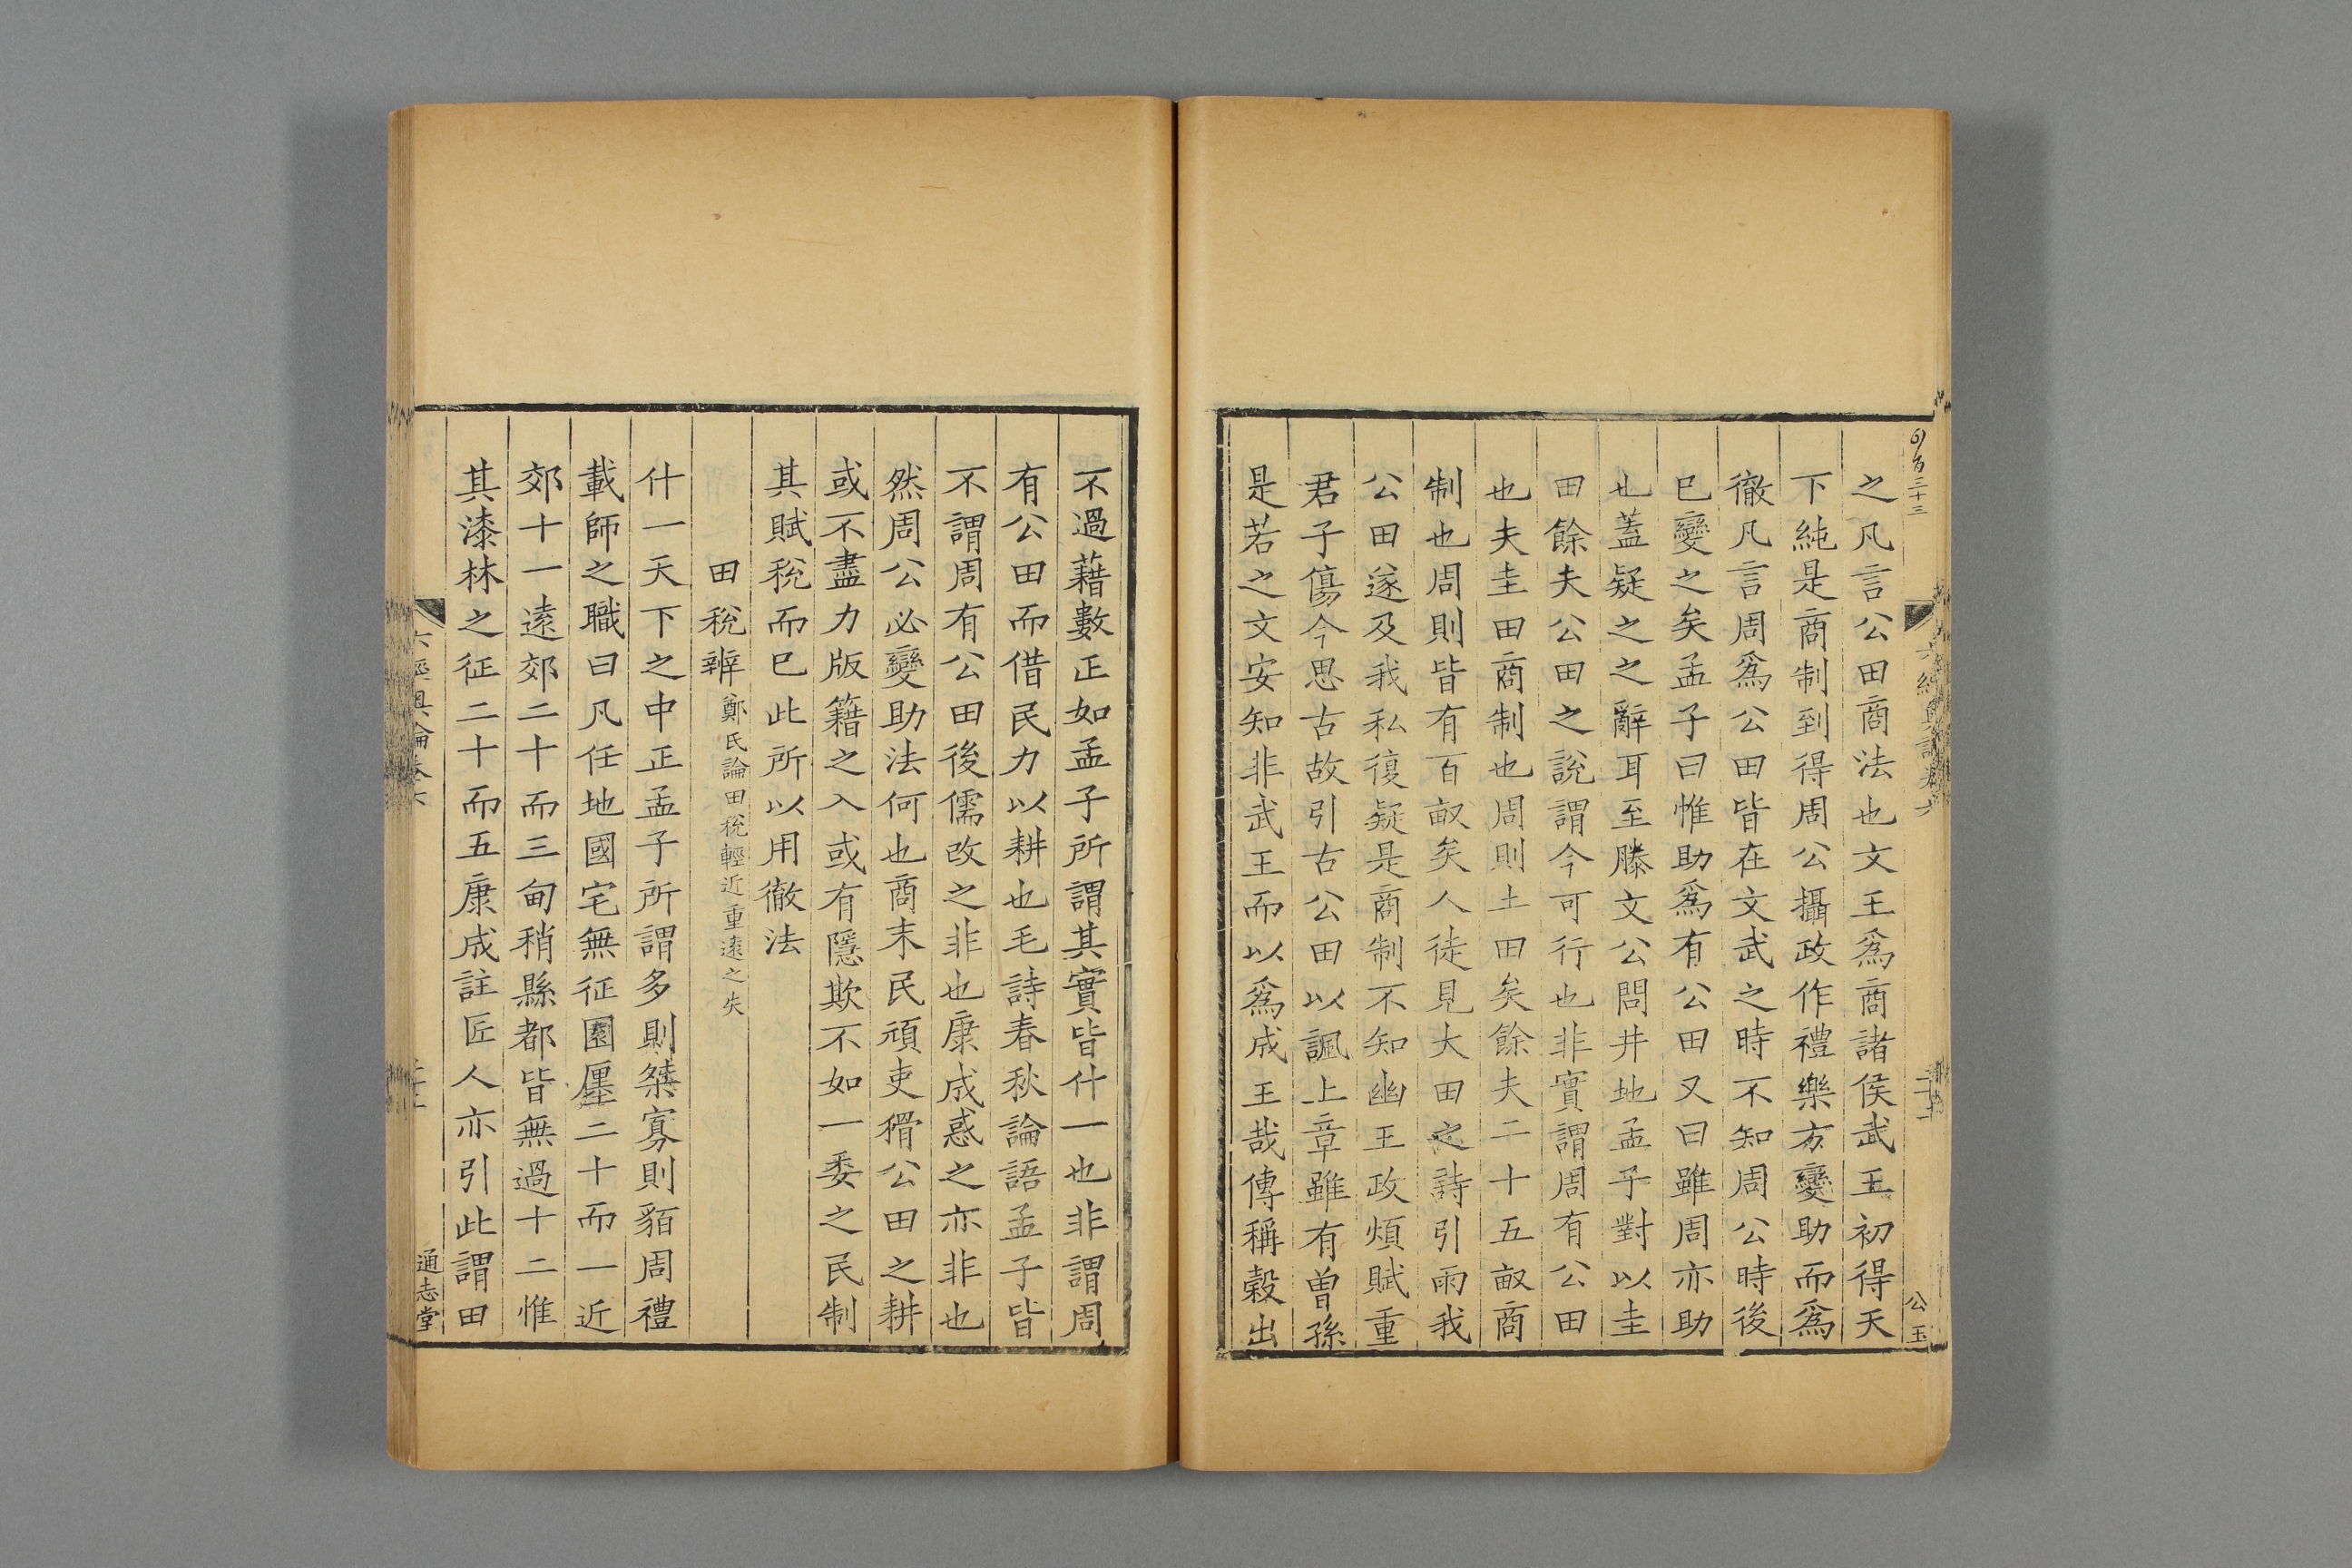 之凡言公田商法也文王爲商諸侯武王初得天
下純是商制到得周公攝政作禮樂方變助而爲
徹凡言周爲公田皆在文武之時不知周公時後
已變之矣孟子曰惟助爲有公田又曰雖周亦助
也蓋疑之之辭耳至滕文公問井地孟子對以圭
田餘夫公田之說謂今可行也非實謂周有公田
也夫圭田商制也周則士田矣餘夫二十五畝商
制也周則皆有百畝矣人徒見大田之詩引雨我
公田遂及我私復疑是商制不知幽王政煩賦重
君子傷今思古故引古公田以諷上章雖有曾孫
是若之文安知非武王而以爲成王哉傳稱穀出
不過藉數正如孟子所謂其實皆什一也非謂周
有公田而借民力以耕也毛詩春秋論語孟子皆
不謂周有公田後儒改之非也康成惑之亦非也
然周公必變助法何也商末民頑吏猾公田之耕
或不盡力版籍之入或有隱欺不如一委之民制
其賦稅而已此所以用徹法
田稅辨鄭氏論田稅輕近重遠之失
什一天下之中正孟子所謂多則桀寡則貊周禮
載師之職曰凡任地國宅無征園廛二十而一近
郊十一遠郊二十而三甸稍縣都皆無過十二惟
其漆林之征二十而五康成註匠人亦引此謂田
六經奧論卷六
通志堂